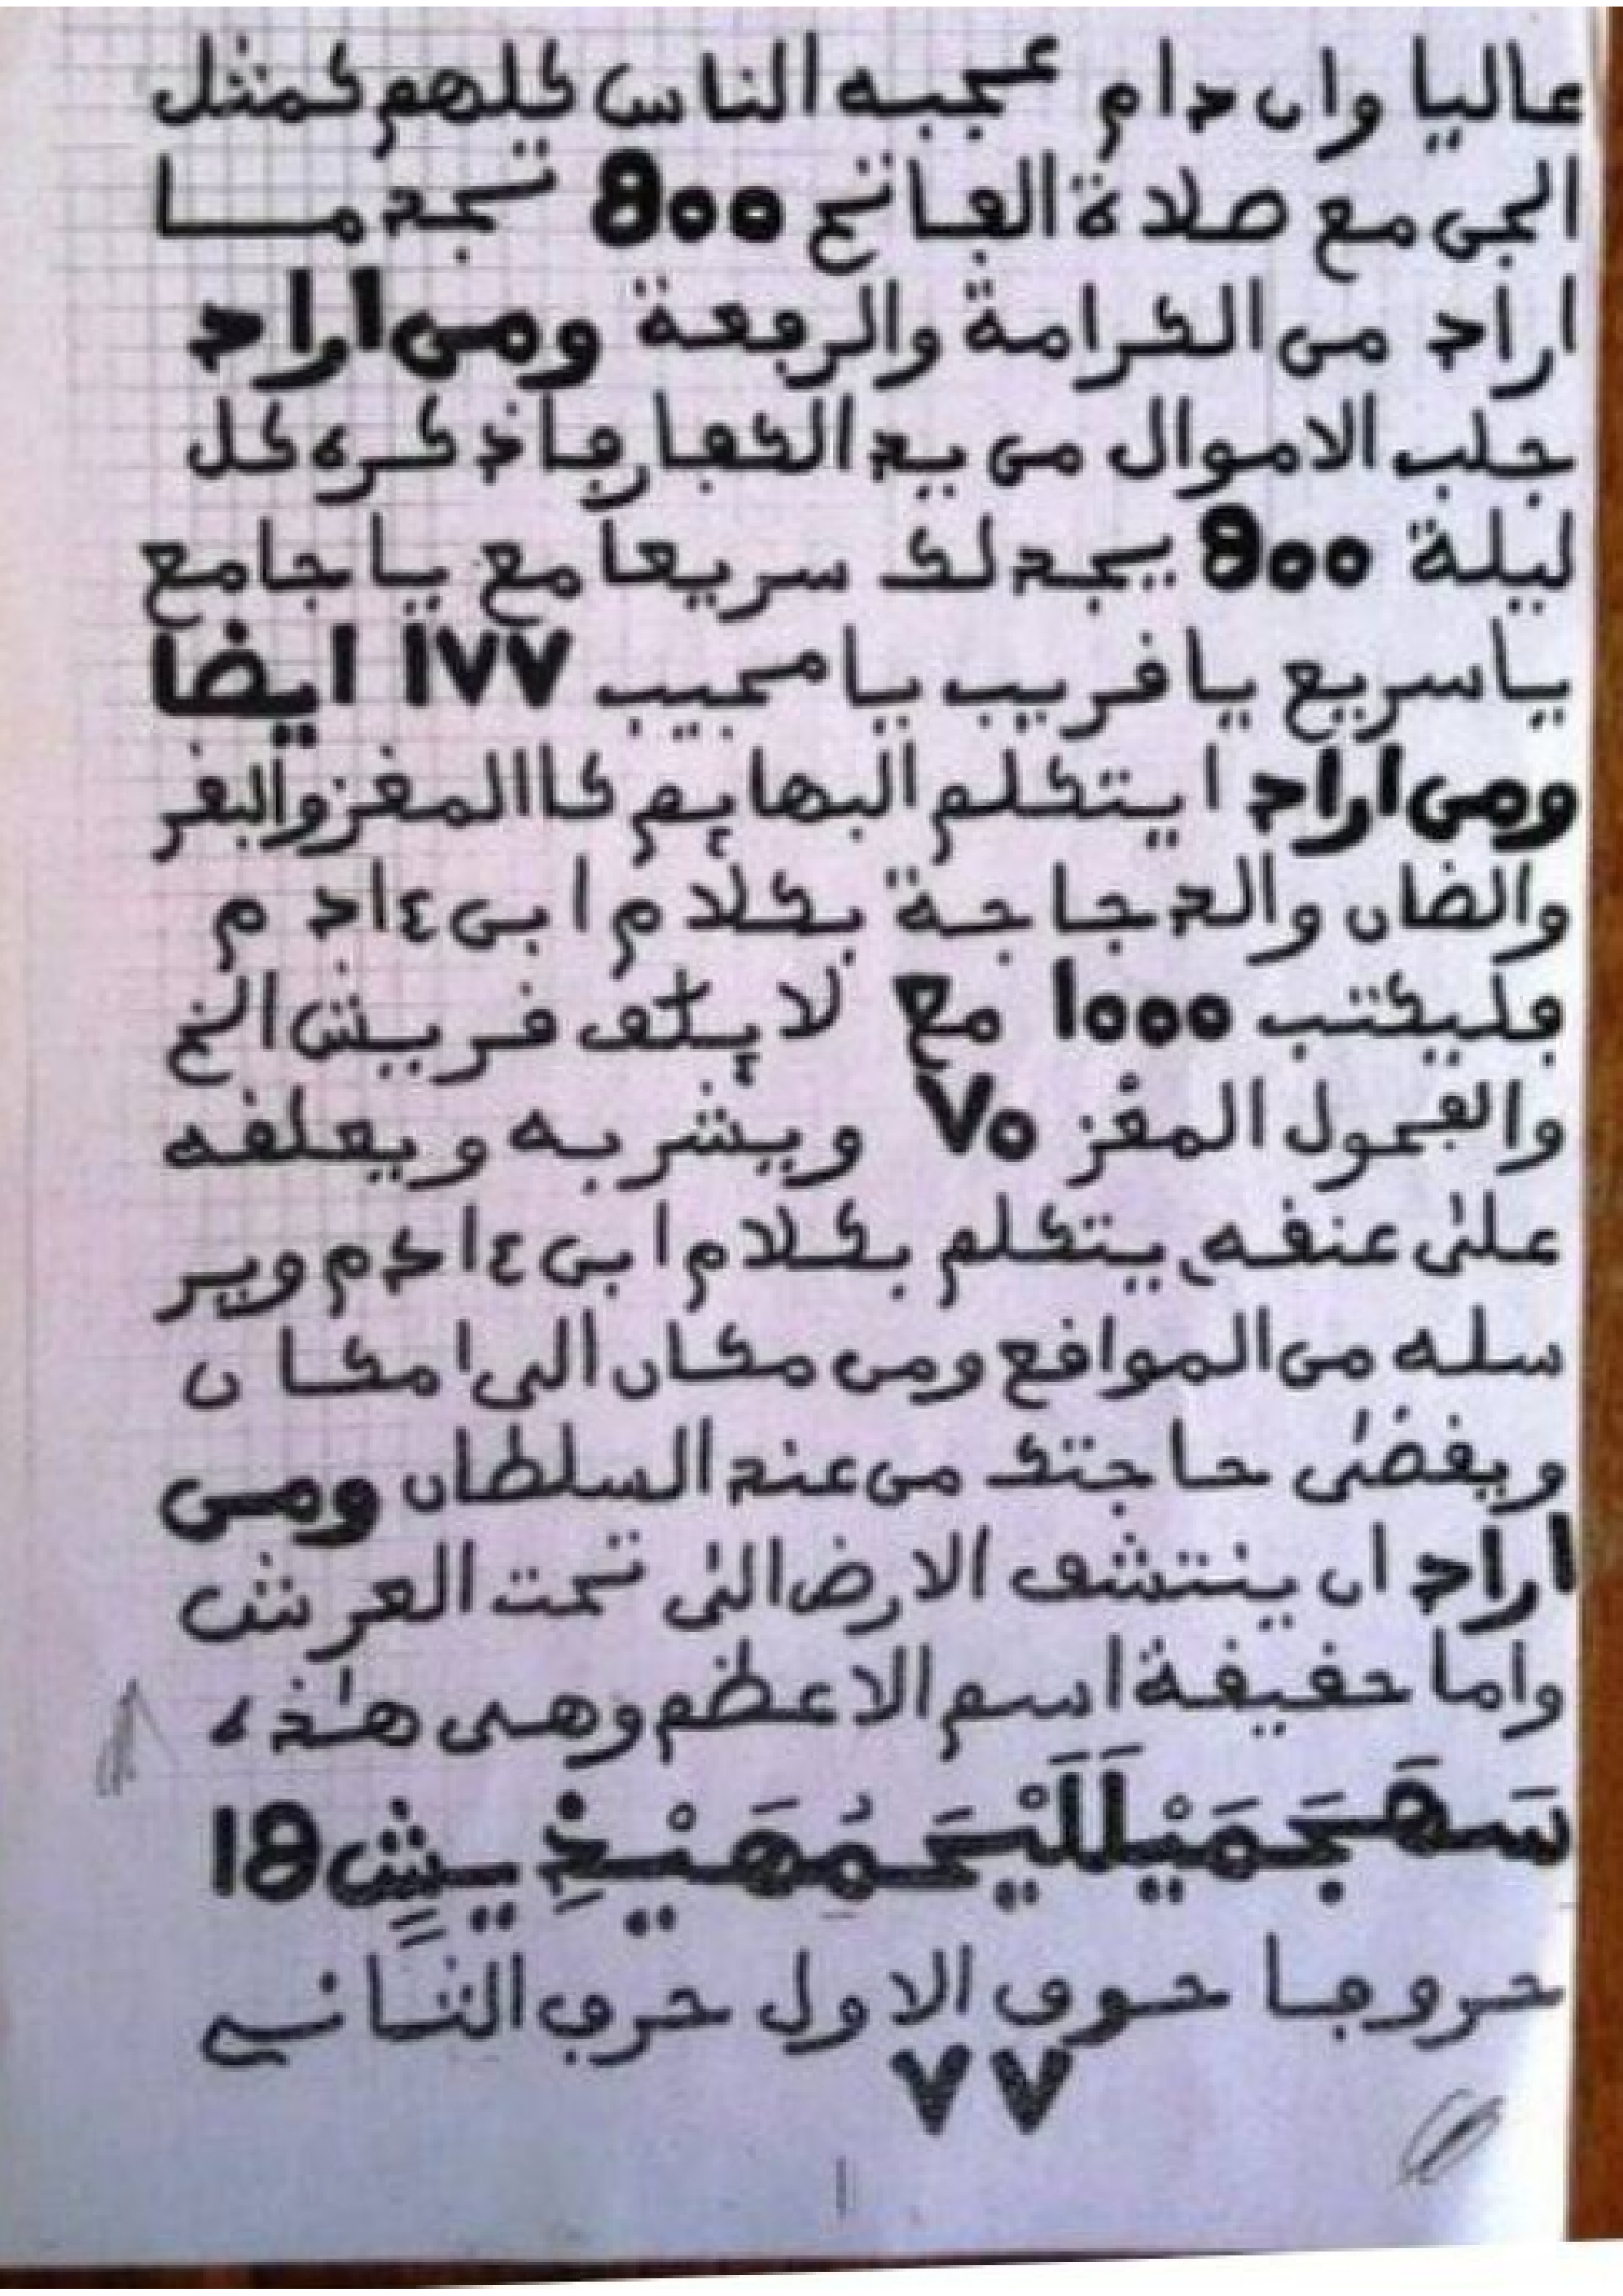 عاليا وان دام عجبه الناس كلهم كمثل
الجن مع صلاة الفاتح 800 تجد ما
اراد من الكرامة والرفعة ومن اراد
جلب الاموال من يد الكفار فاذكره كل
ليلة 800 يجد لك سريعا مع يا جامع
يا سريع يا قريب يا مجيب 177 ايضا
ومن اراد ا يتكلم البهايم كا المغز والبقر
والضان والدجاجة بكلام ابى ءادم
فليكتب 1000 مع لا يلف قريش الخ
والفحول المغز 70 ويشربه ويعلقه
على عنقه يتكلم بكلام ابى ءادم وير
سله من المواقع ومن مكان الى امكان
ويقضى حاجتك من عند السلطان ومن
اراد ان ينتشف الارض التى تحت العرش
واما حقيقة اسم الاعظم وهى هاذه
سَهَجَمَيْلَلَيْحَمُهَيْخِيشٍ 18
حروفا حوف الاول حرف الثانى
77